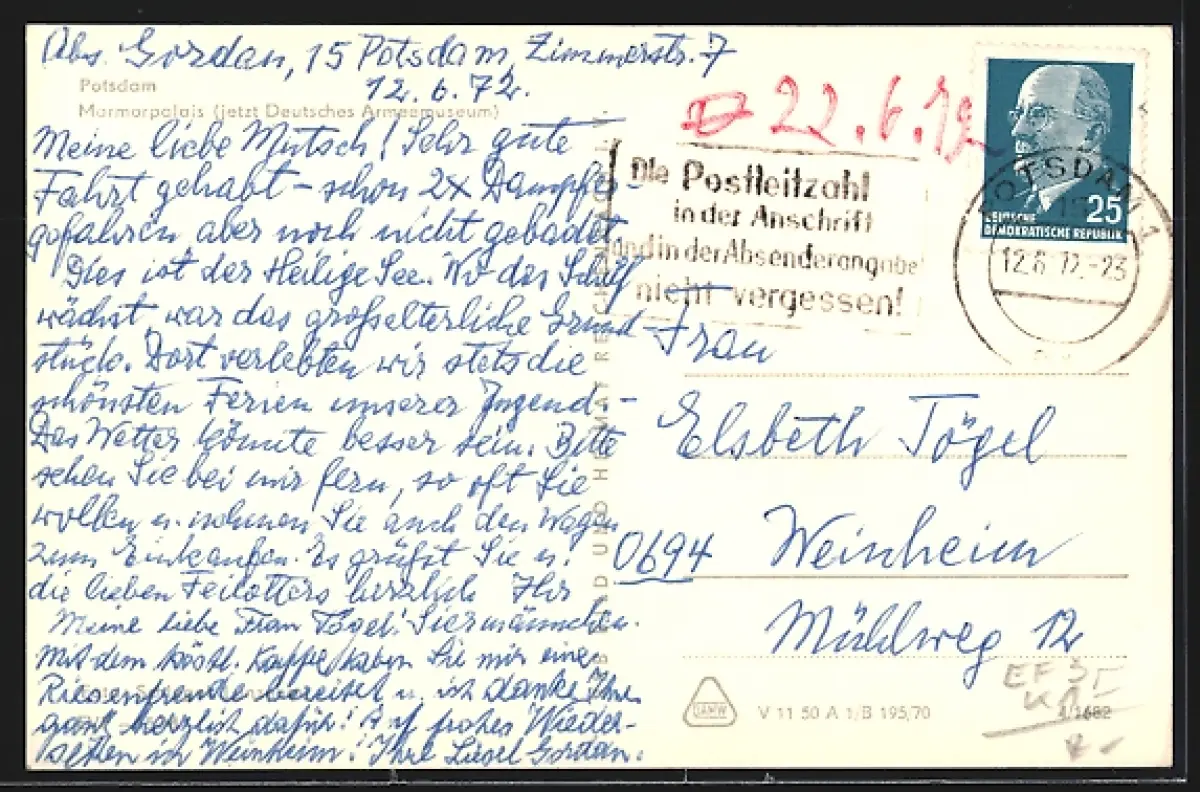 Abs. Gordan, 15 Potsdam, Zimmerstr. 7
12.6.72.
Potsdam
Marmorpalais (jetzt Deutsches Armeemuseum)
Meine liebe Mutsch! Sehr gute
Fahrt gehabt – schon 2x Dampfer-
gefahren, aber noch nicht gebadet.
Dies ist der Heilige See. Wo das Schilf
wächst, war das großelterliche Grund-
stück. Dort verlebten wir stets die
schönsten Ferien unserer Jugend. -
Das Wetter könnte besser sein. Bitte
sehen Sie bei mir fern, so oft Sie
wollen u. nehmen Sie auch den Wagen
zum Einkaufen. Es grüßt Sie u.
die lieben herzlich Ihr
Meine liebe Frau Tögel!
Mit dem köstl. Kaffee haben Sie mir eine
Riesenfreude bereitet u. ich danke Ihnen
ganz herzlich dafür! Auf frohes Wieder-
sehen in Weinheim! Ihre Liesel Gordan.
22.6.72
Die Postleitzahl
in der Anschrift
und in der Absenderangabe
nicht vergessen!
POTSDAM 1
15
12.6.72.-23
25
DEUTSCHE
DEMOKRATISCHE REPUBLIK
Frau
Elsbeth Tögel
0694 Weinheim
Mühlweg 12
V 11 50 A 1/B 195/70
EF 35
4/1682